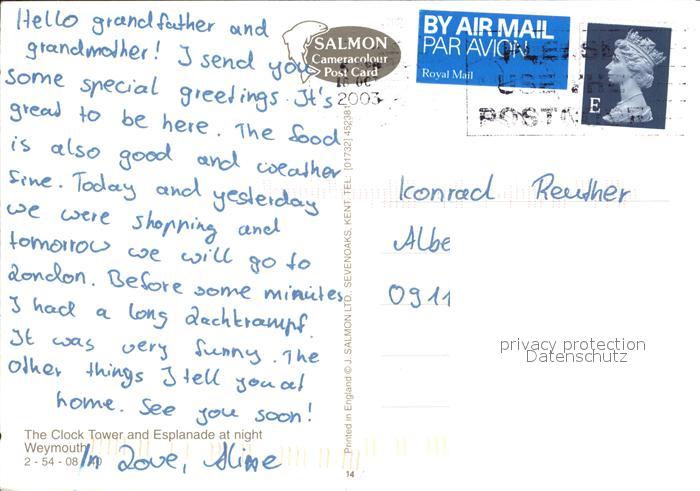 Hello grandfather and
grandmother! I send you
some special greetings. It's
great to be here. The food
is also good and weather
fine. Today and yesterday
we were shopping and
tomorrow we will go to
London. Before some minutes
I had a long Lachkrampf.
It was very funny. The
other things I tell you at
home. See you soon!
In Love, Aline
The Clock Tower and Esplanade at night
Weymouth
2 - 54 - 08
SALMON
Cameracolour
Post Card
2003
Printed in England © J. SALMON LTD., SEVENOAKS, KENT. TEL: (01732) 452381
14
BY AIR MAIL
PAR AVION
Royal Mail
E
PLEASE
USE THE
POST
Konrad Reuther
Albe
0911
privacy protection
Datenschutz